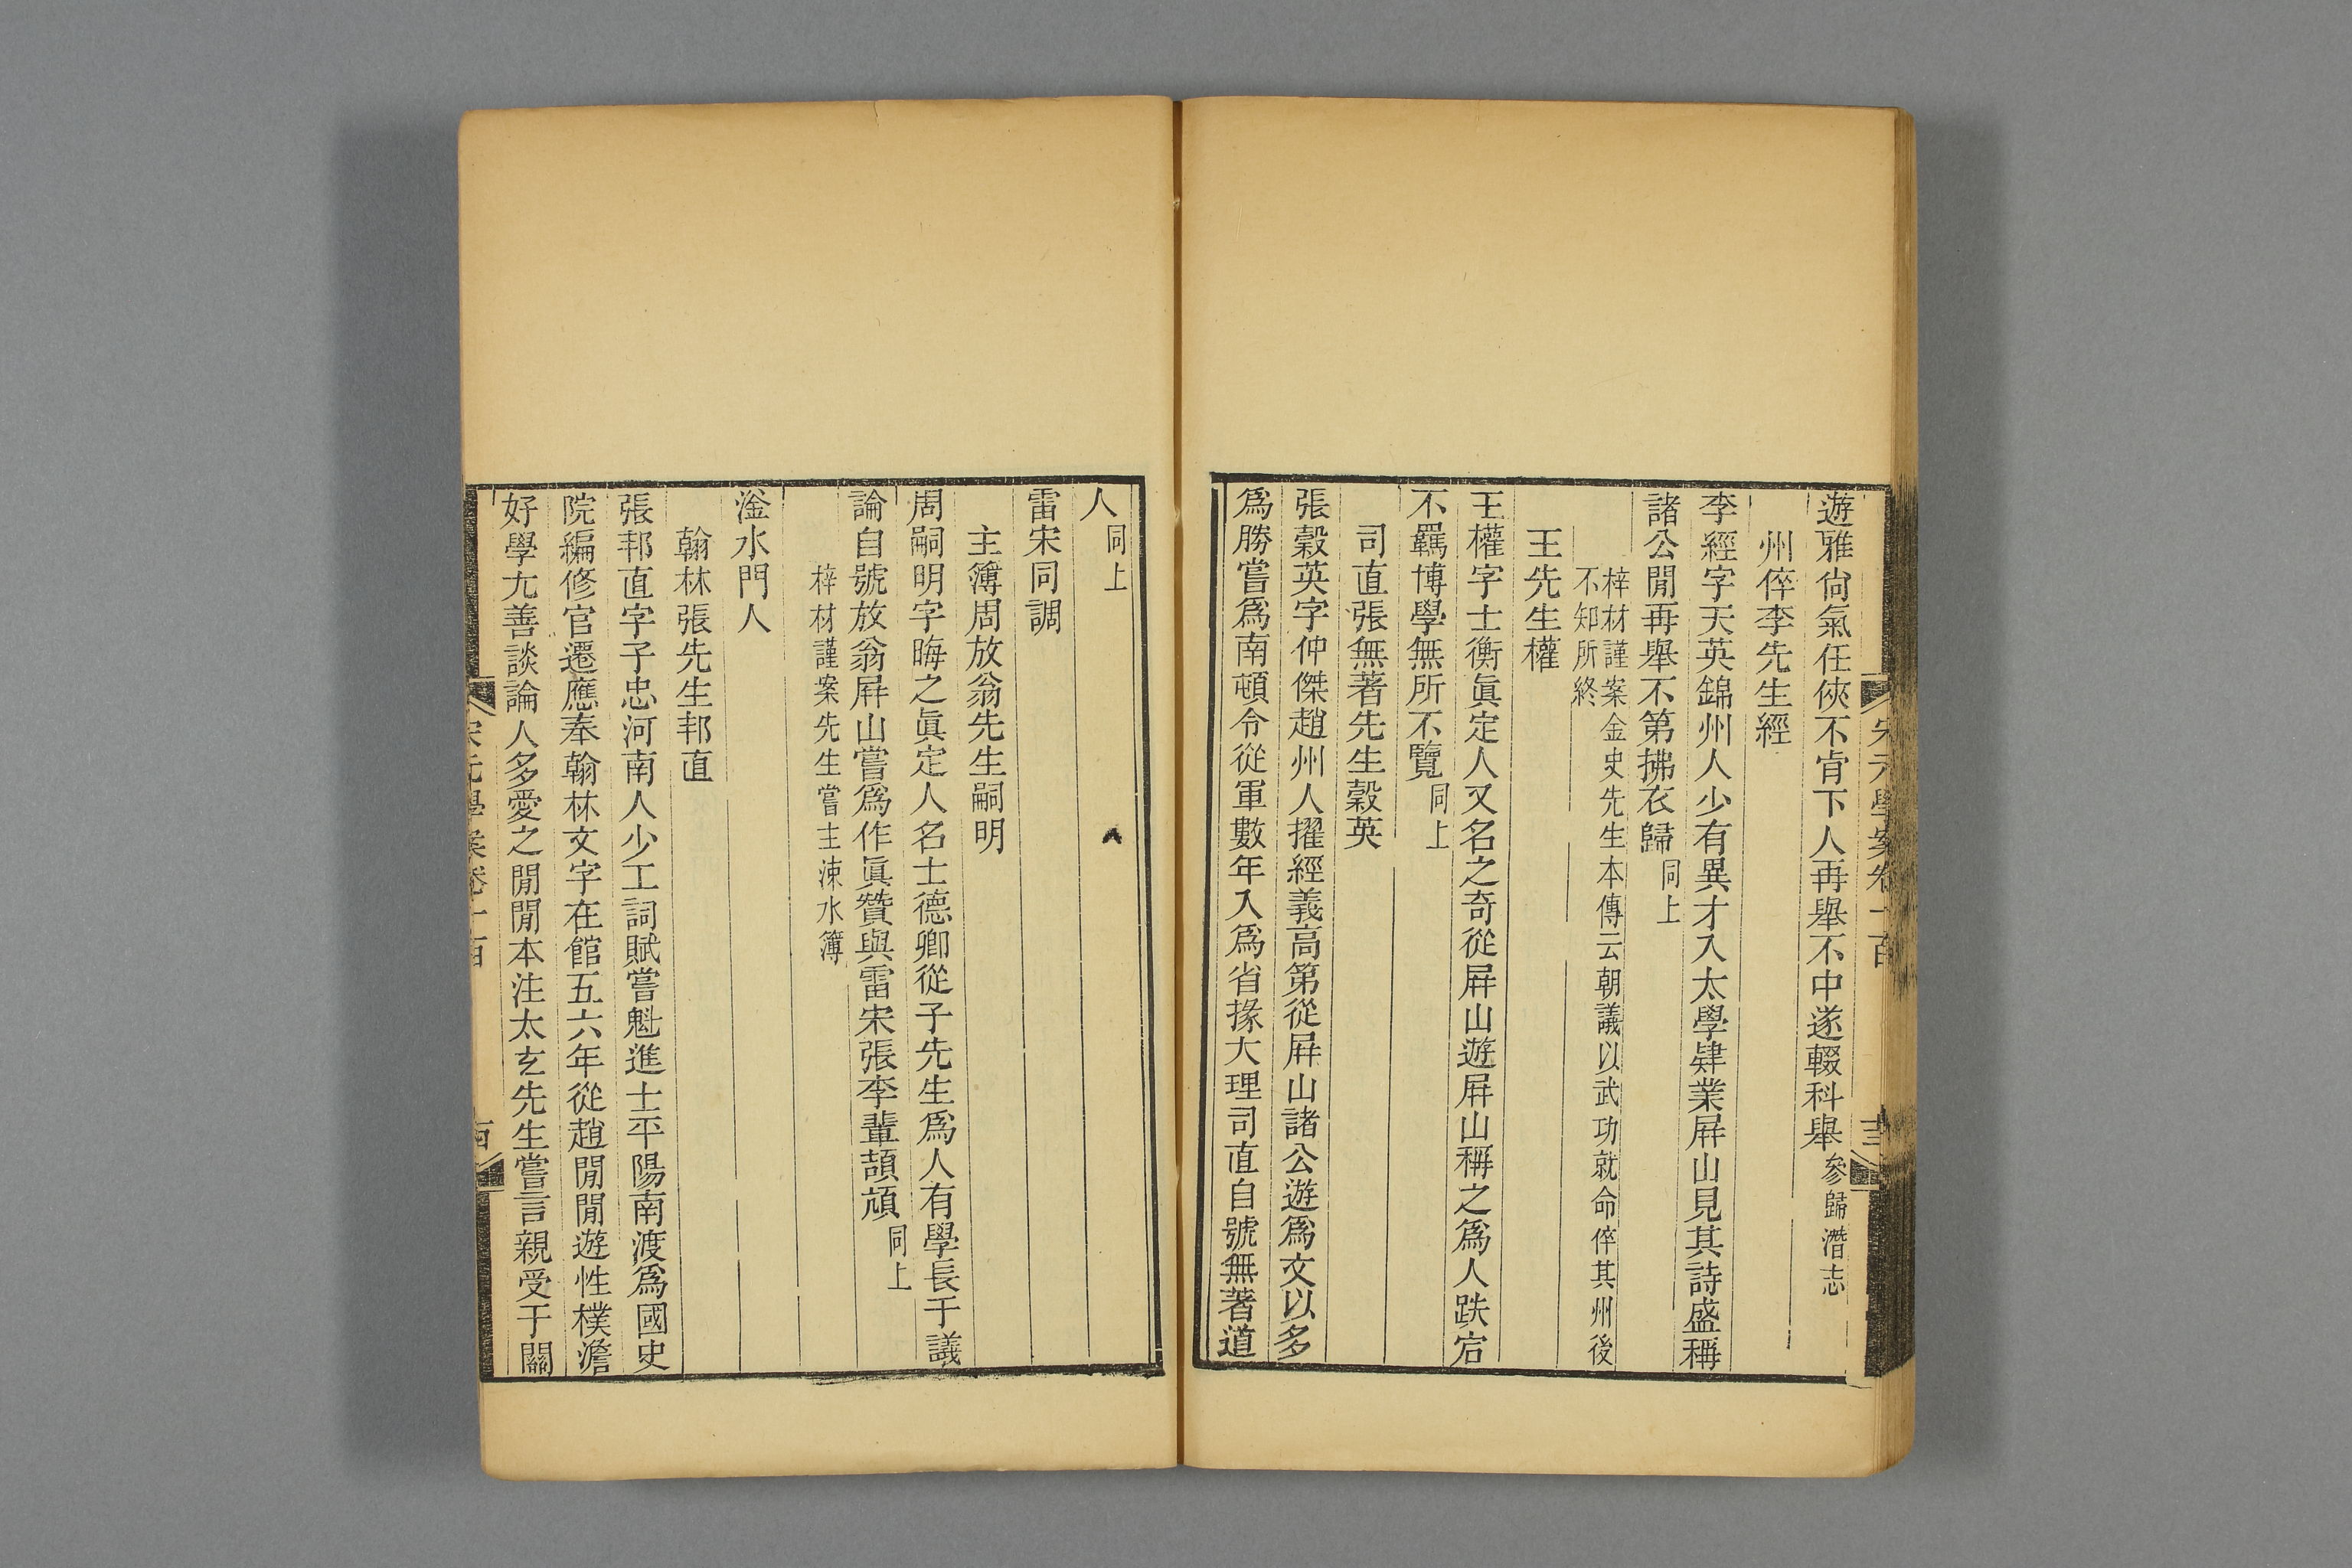 宋元學案卷一百
十三
遊雅尙氣任俠不肯下人再舉不中遂輟科舉參歸潛志
州倅李先生經
李經字天英錦州人少有異才入太學肄業屛山見其詩盛稱
諸公閒再舉不第拂衣歸同上
梓材謹案金史先生本傳云朝議以武功就命倅其州後
不知所終
王先生權
王權字士衡眞定人又名之奇從屛山遊屛山稱之爲人跌宕
不羈博學無所不覽同上
司直張無著先生穀英
張穀英字仲傑趙州人擢經義高第從屛山諸公遊爲文以多
爲勝嘗爲南頓令從軍數年入爲省掾大理司直自號無著道
人同上
雷宋同調
主簿周放翁先生嗣明
周嗣明字晦之眞定人名士德卿從子先生爲人有學長于議
論自號放翁屛山嘗爲作眞贊與雷宋張李輩頡頏同上
梓材謹案先生嘗主涑水簿
滏水門人
翰林張先生邦直
張邦直字子忠河南人少工詞賦嘗魁進士平陽南渡爲國史
院編修官遷應奉翰林文字在館五六年從趙閒閒遊性樸澹
好學尤善談論人多愛之閒閒本注太玄先生嘗言親受于關
宋元學案卷一百